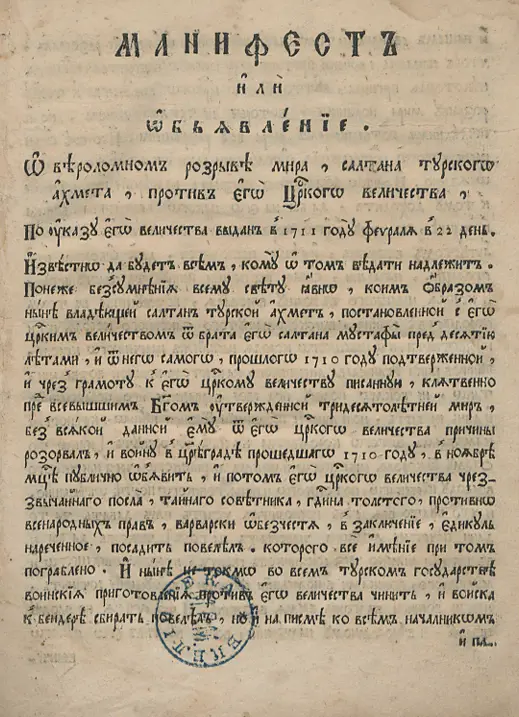 МАНИФЕСТЪ
И҆лѝ
Ѡ҆бъѧвле́нїе.
Ѡ҆ вѣроломномъ розрывѣ мира, салтана турскогѡ
ахмета, противъ є҆гѡ̀ Цр҃когѡ величества,
По ѹ҆казу є҆гѡ̀ величества выданъ в̾ 1711 году̀ феѵралѧ в̾ 22 день.
И҆звѣстнѡ да будетъ всѣмъ, кому ѡ҆ том вѣдати надлежитъ.
Понеже без̾сумнѣнїѧ всему свѣту ꙗ҆внѡ, коимъ ѡ҆бразомъ
нн҃ѣ владѣющей салтанъ турской а҆хметъ, постановленной с̾ є҆гѡ̀
цр҃кимъ величествомъ ѿ брата є҆гѡ̀ салтана мустафы пред̾ десѧтїю
лѣтами, и҆ ѿ негѡ самогѡ, прошлогѡ 1710 году подтверженной,
и҆ чрез̾ грамоту к̾ є҆гѡ̀ цр҃кому величеству писанную, клѧтвенно
пре всевышшимъ Бг҃омъ ѹ҆твержденной тридесѧтолѣтней миръ,
без̾ всѧкой данной є҆му̀ ѿ є҆гѡ̀ цр҃когѡ величества причины
розорвалъ, и҆ войну в̾ цр҃ѣградѣ прошедшагѡ 1710 году, в̾ ноѧбрѣ
мц҃ѣ публично ѡ҆бъѧвить, и҆ потомъ є҆гѡ̀ цр҃когѡ величества чрез-
звычайнаго посла̀, тайнаго совѣтника, гдина толстого, противнѡ
всенароднымъ правъ, варварски ѡ҆безчестѧ, в̾ заключенїе, є҆дикуль
нареченное, посадить повелѣлъ. которогѡ все и҆мѣнїе при томъ
пограблено. И҆ нн҃ѣ не токмѡ во всемъ турскомъ государствѣ
воинскїѧ приготовленїѧ против̾ є҆гѡ̀ величества чинить, и҆ войска
к̾ бендерѣ сбирать повелѣлъ, но и҆ на писмѣ ко всѣмъ начальникѡмъ
и҆ па...
БИБЛІОТЕК